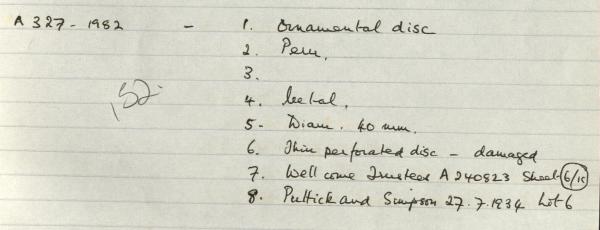 A 327 - 1982 - 1. Ornamental disc
2. Peru,
3.
152.
4. Metal,
5. Diam. 40 mm.
6. Thin perforated disc - damaged
7. Wellcome Trustees A 240823 Sheet 6/15
8. Puttick and Simpson 27.7.1934 Lot 6